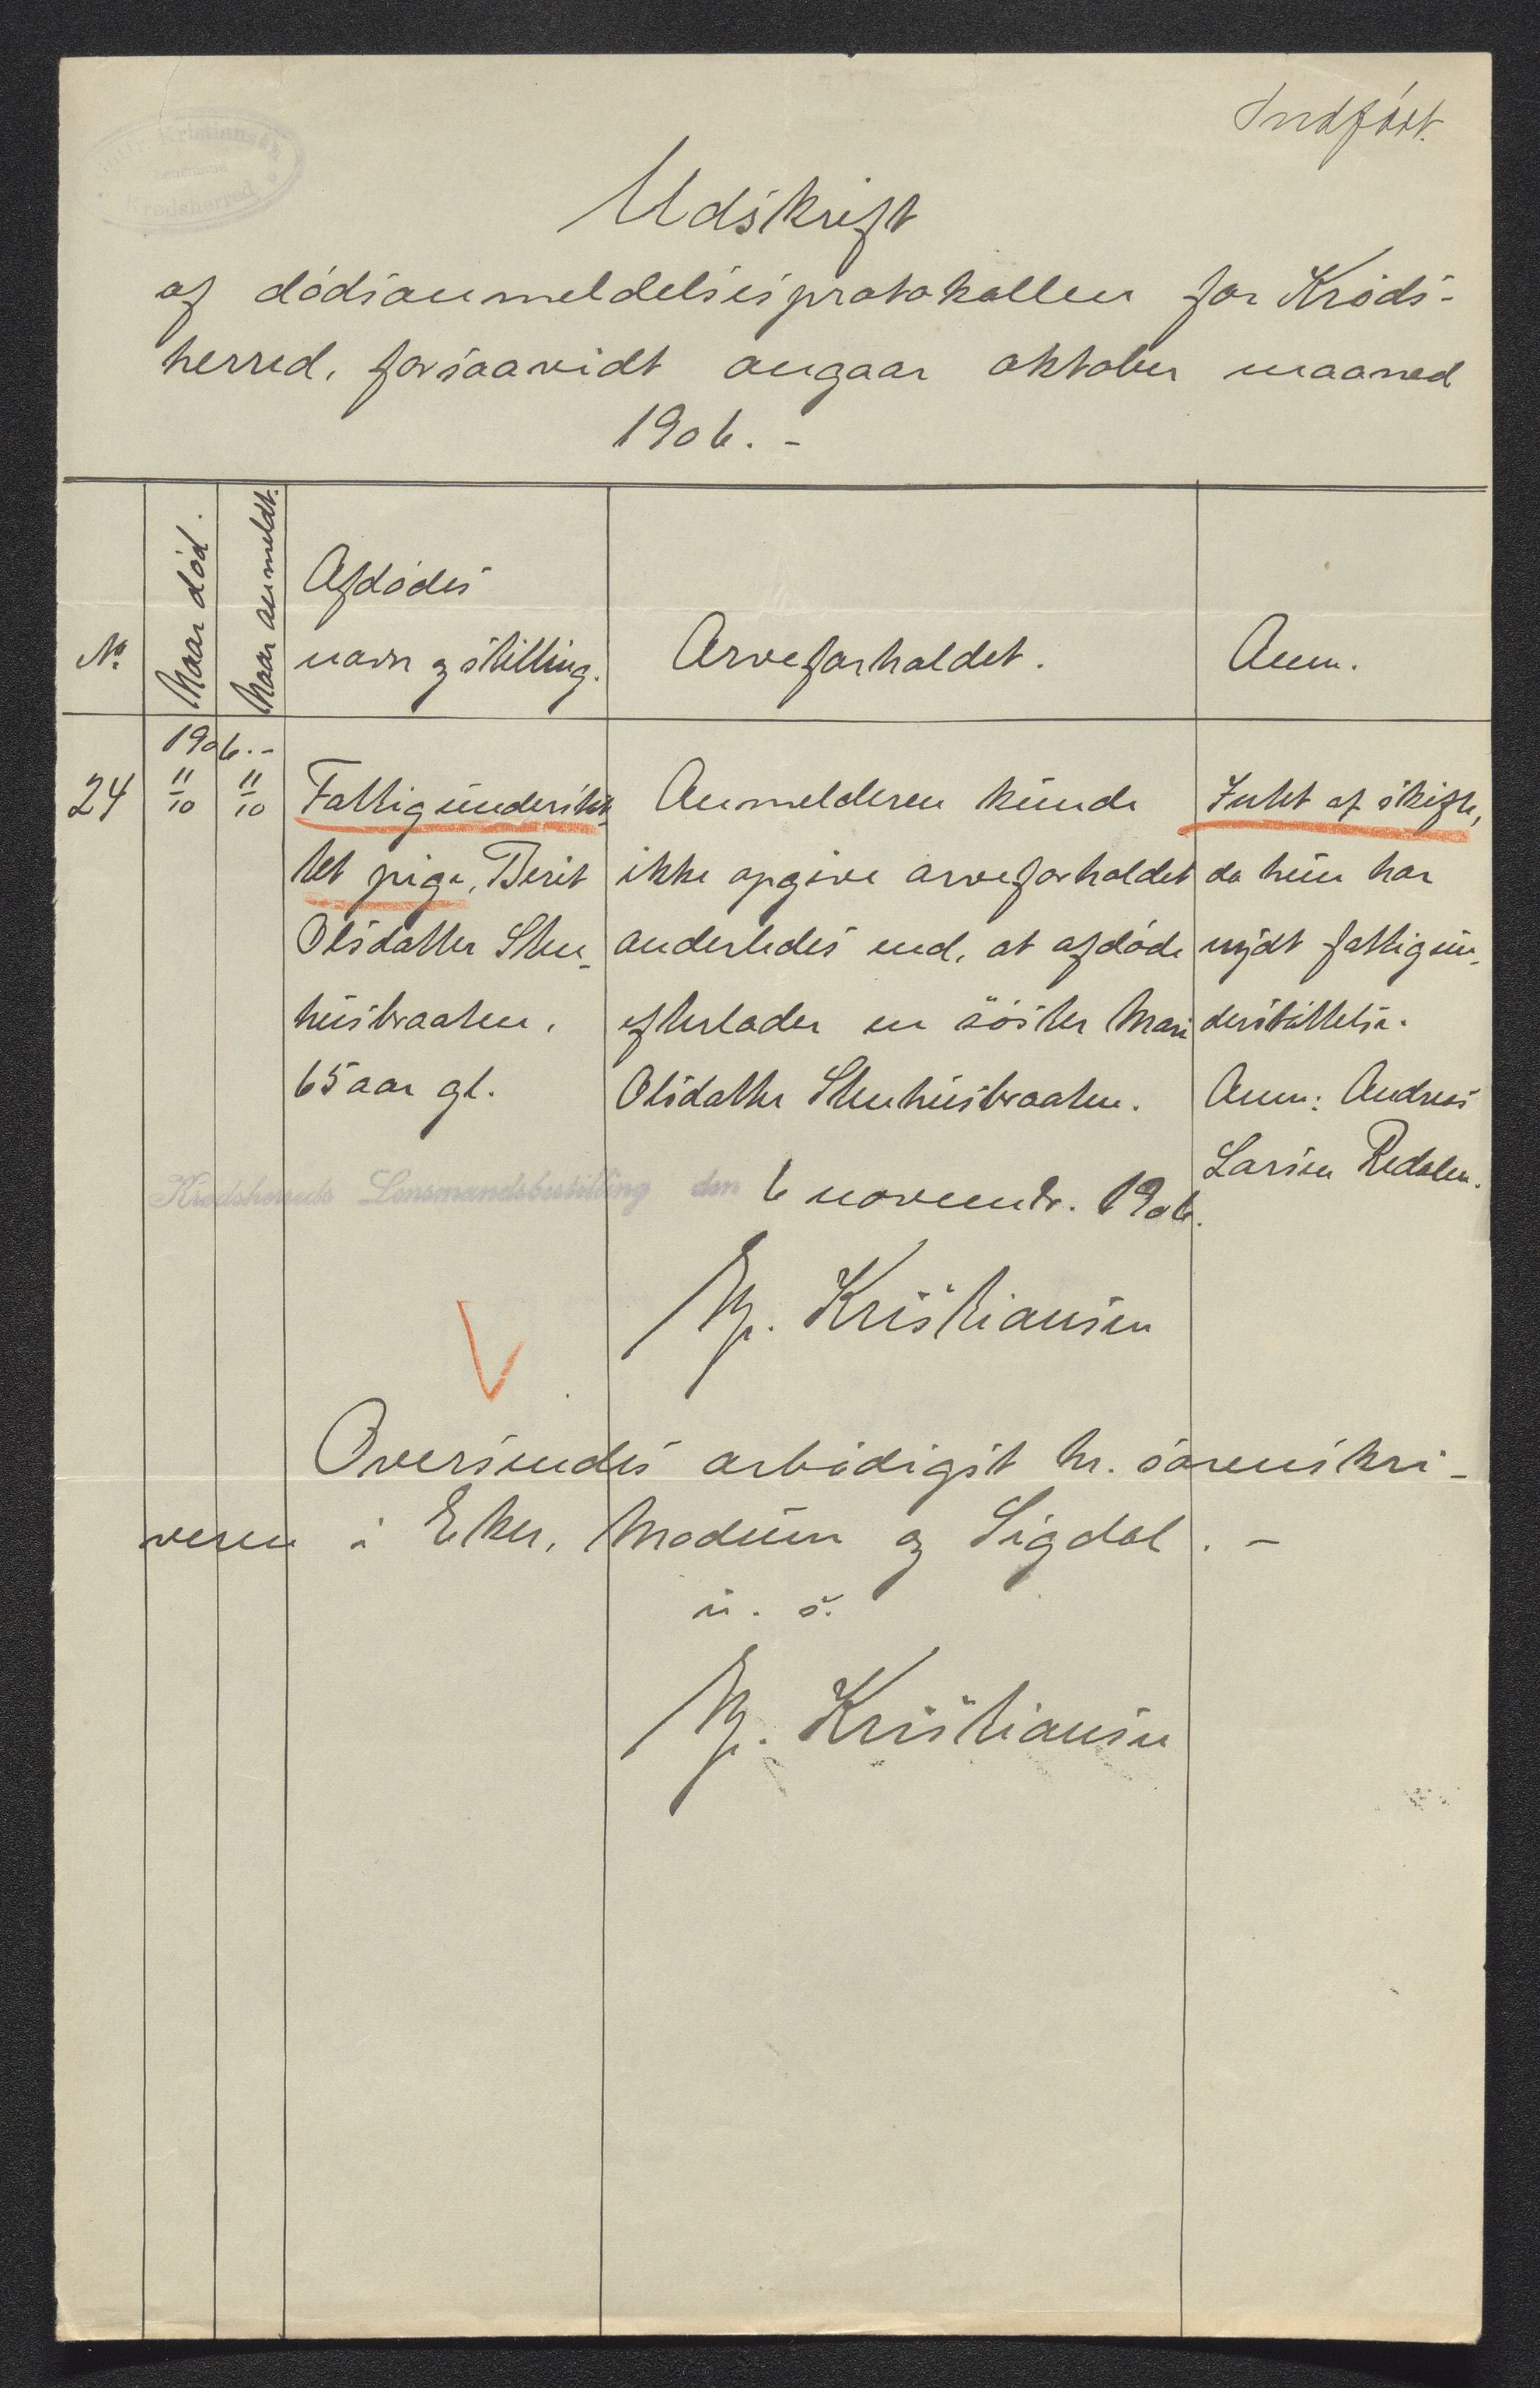 Indført.
Kristiansen
Lensmand
Krødsherred
Udskrift
af dødsanmeldelsesprotokollen for Krøds-
herred, forsaavidt angaar oktober maaned
1906. -
No.
Naar død.
Naar anmeldt.
Afdødes
navn og stilling.
Arveforholdet.
Anm.
1906.-
24
11/10
11/10
Fattigunderstøt-
tet pige, Berit
Olsdatter Sten-
husbraaten.
65 aar gl.
Anmelderen kunde
ikke opgive arveforholdet
anderledes end, at afdøde
efterlader en søster Mari
Olsdatter Stenhusbraaten.
Intet af skifte,
da hun har
nydt fattigun-
derstøttelse.
Anm: Andreas
Larsen Redalen.
Krødsherreds Lensmandsbestilling den 6 novembr. 1906.
N. Kristiansen
Oversendes ærbødigst hr. sorenskri-
veren i Eker, Modum og Sigdal. -
u. s.
N. Kristiansen